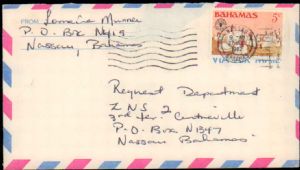 FROM Lorraine Munroe
P.O. Box N4419
Nassau, Bahamas
BAHAMAS 5c
Request Department
ZNS 2
3rd Ter. Centreville
P.O. Box N1347
Nassau Bahamas